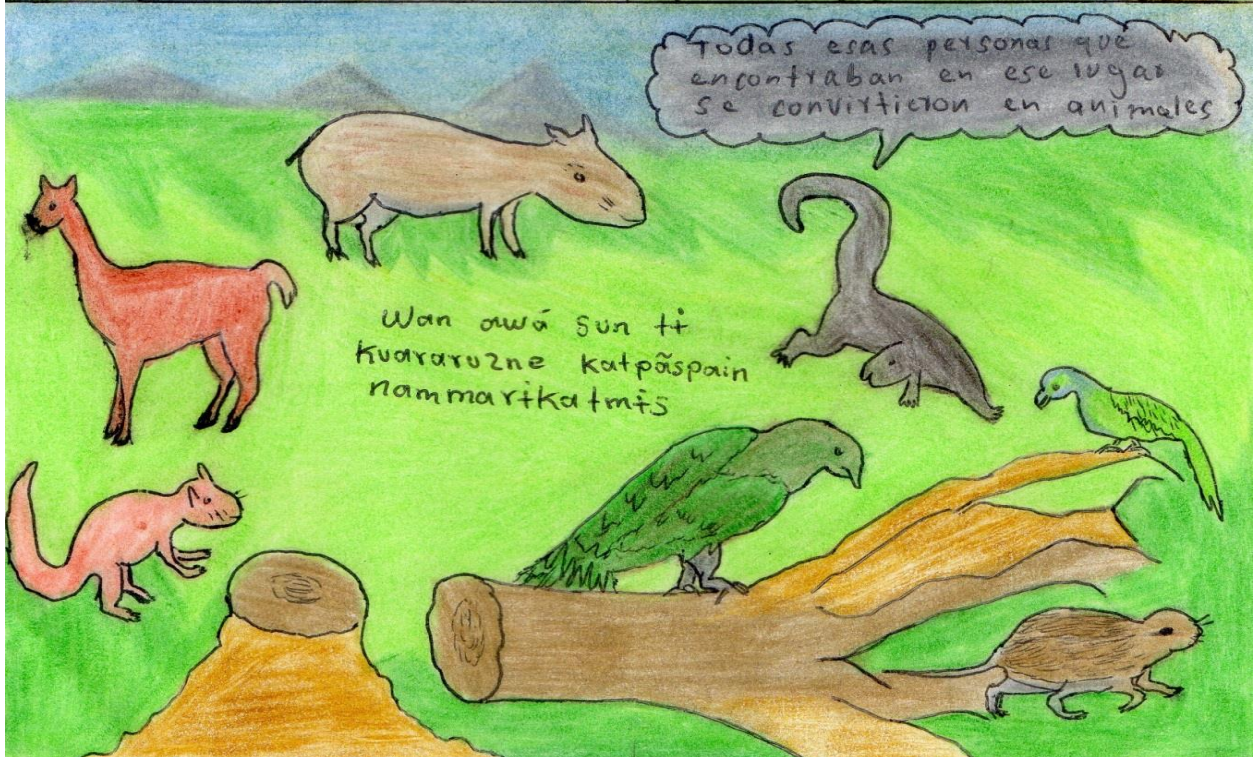 Todas esas personas que
encontraban en ese lugar
se convirtieron en animales
Wan awá sun tɨ
kuararuzne katpãspain
nammarɨkatmɨs